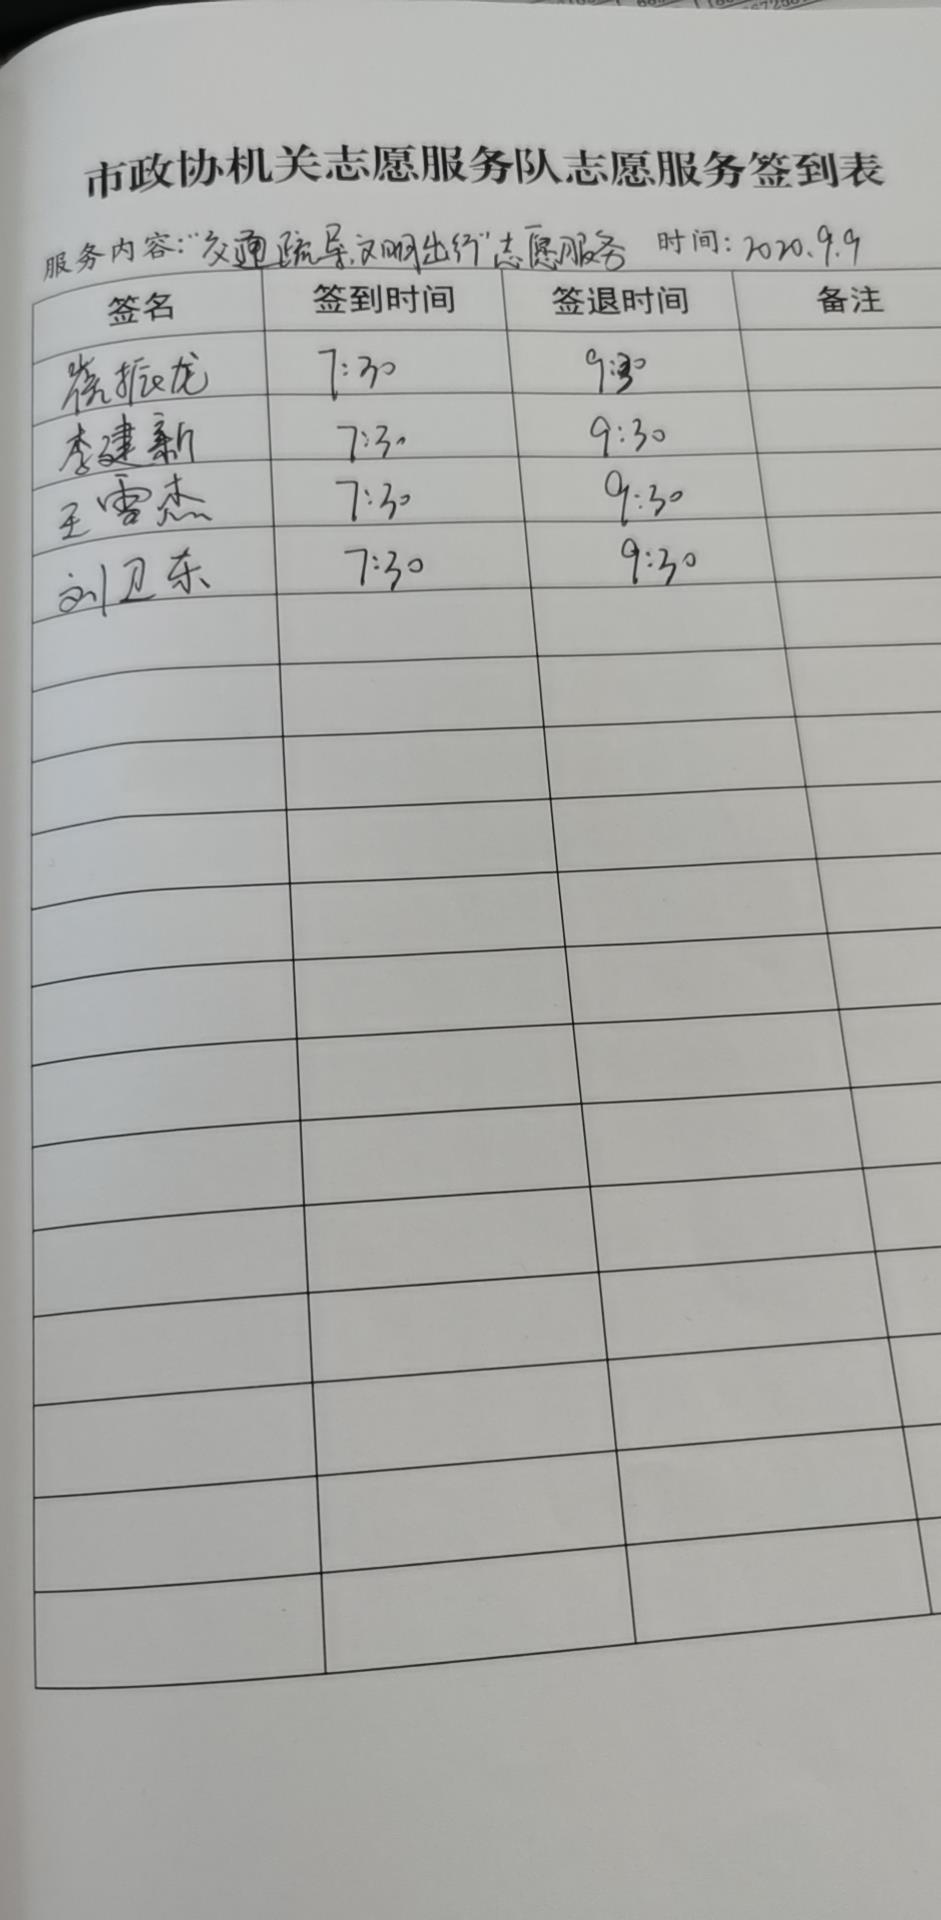 市政协机关志愿服务队志愿服务签到表
服务内容:“交通疏导,文明出行”志愿服务 时间: 2020.9.9
签名 签到时间 签退时间 备注
振龙 7:30 9:30
李建新 7:30 9:30
王雪杰 7:30 9:30
刘卫东 7:30 9:30